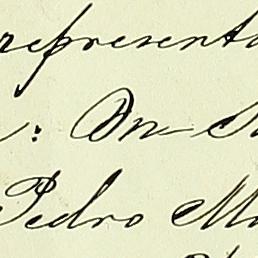 representa
: Don
Pedro Ma